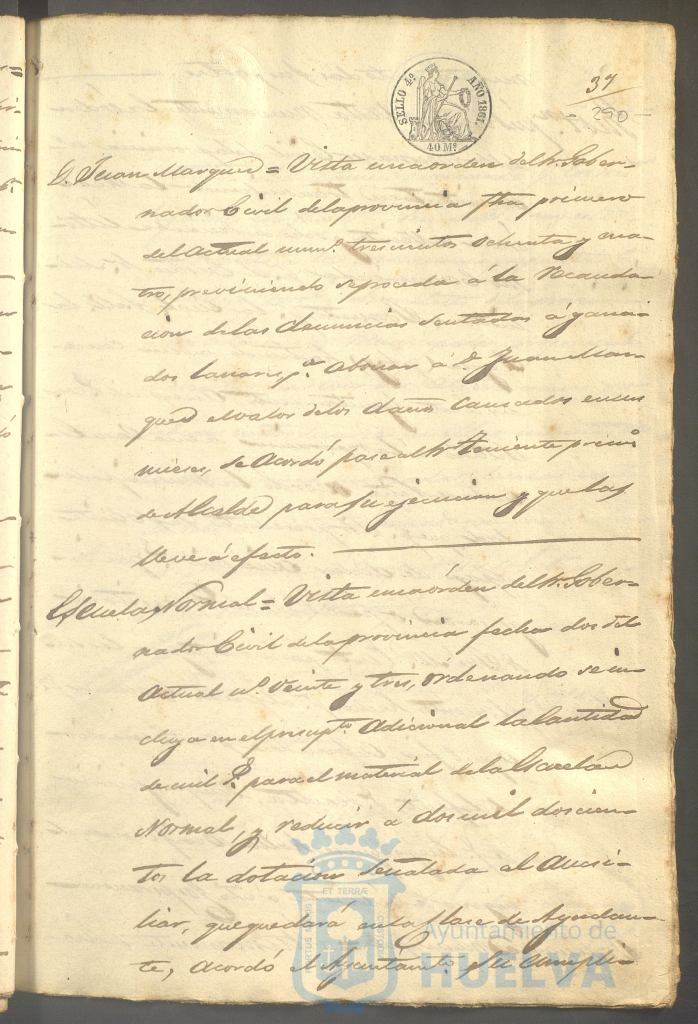 SELLO 4º AÑO 1861.
40 Ms.
37
290
D. Juan Marquez = Vista una orden del Sr. Gober-
nador Civil de la provincia fha primero
del actual numº. trescientos ochenta y cua-
tro, previniendo se proceda á la recauda-
cion de las denuncias sentadas á gana-
dos lanares pª. abonar á D. Juan Mar-
quez el valor de los daños causados en sus
mieses, se acordó pase al Sr. Teniente primº
de Alcalde para su ejecucion y que las
lleve á efecto.
Escuela Normal = Vista una órden del Sr. Gober-
nador Civil de la provincia fecha dos del
actual nº. veinte y tres, ordenando se in-
cluya en el presupto. adicional la cantidad
de mil rs. para el material de la Escuela
Normal, y reducir á dos mil doscien-
tos la dotacion señalada al ausi-
liar, que quedará en la clase de Ayudan-
te, acordó el Ayuntamto. su cumpli-
ET TERRÆ
Ayuntamiento de
HUELVA